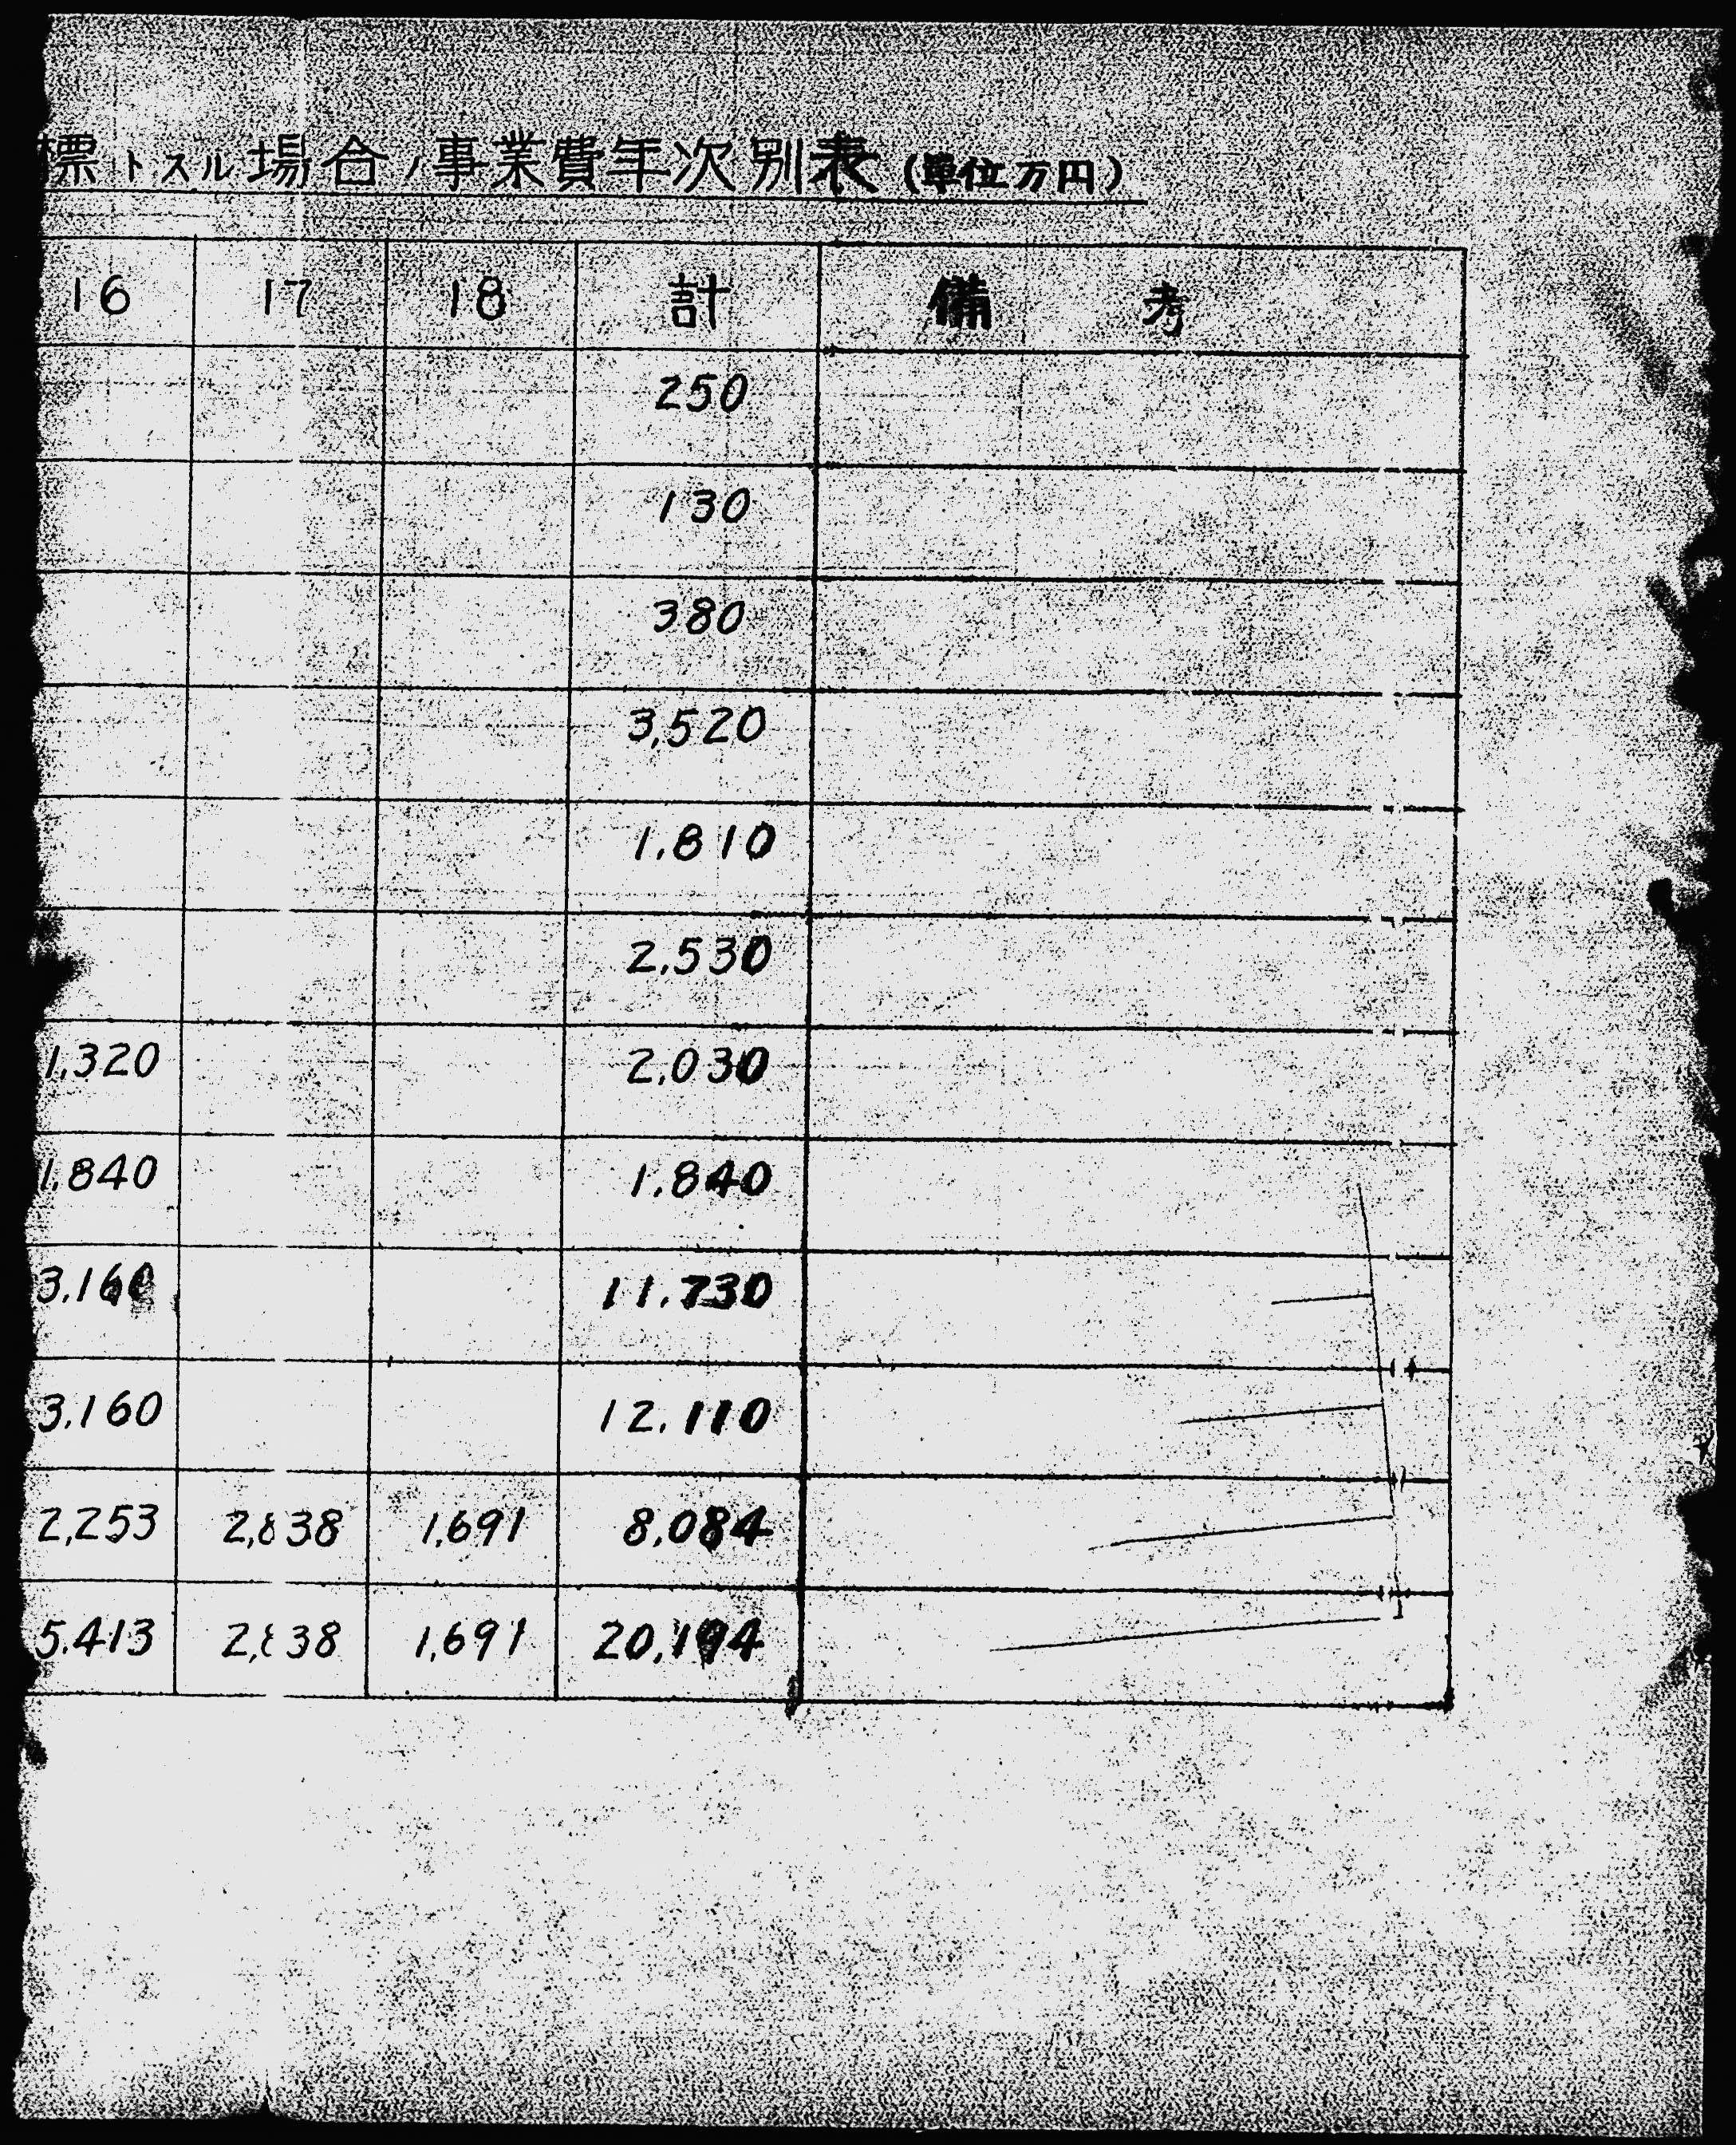 標トスル場合ノ事業費年次別表 (単位万円)
16 17 18 計 備考
250
130
380
3,520
1.810
2.530
1.320 2.030
1.840 1.840
3.160 11.730
3.160 12.110
2,253 2,838 1.691 8.084
5.413 2,838 1.691 20.194